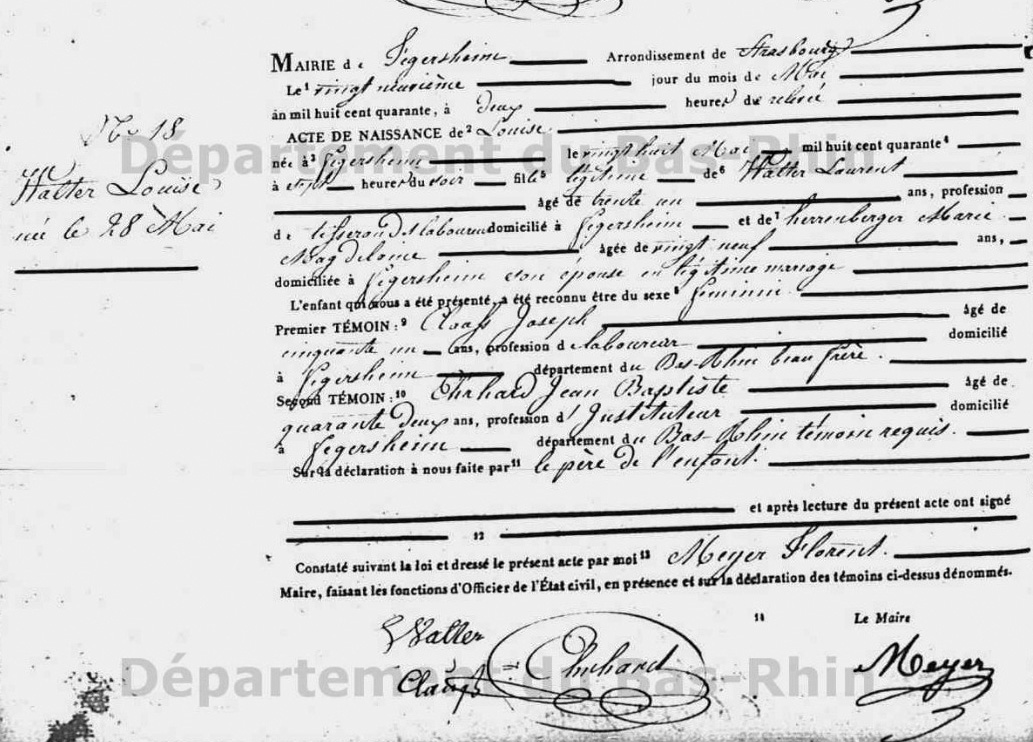 No 18
Walter Louise
née le 28 Mai
MAIRIE de Fegersheim Arrondissement de Strasbourg
Le¹ vingt neuvième jour du mois de Mai
an mil huit cent quarante, à deux heures de relevée
ACTE DE NAISSANCE de² Louise.
née à³ Fegersheim le vingt huit Mai mil huit cent quarante⁴
à sept heures du soir fille⁵ légitime de⁶ Walter Laurent
âgé de trente un ans, profession
de tisserand & laboureur domicilié à Fegersheim et de⁷ herrenberger Marie
Magdelaine âgée de vingt neuf ans,
domiciliée à Fegersheim son épouse en légitime mariage
L'enfant qui nous a été présenté, a été reconnu être du sexe⁸ féminin.
Premier TÉMOIN:⁹ Claass Joseph âgé de
cinquante un ans, profession de laboureur domicilié
à Fegersheim département du Bas-Rhin beau frère.
Second TÉMOIN:¹⁰ Ehrhard Jean Baptiste âgé de
quarante deux ans, profession d'Instituteur domicilié
à Fegersheim département du Bas-Rhin témoin requis.
Sur la déclaration à nous faite par¹¹ le père de l'enfant.
et après lecture du présent acte ont signé
12
Constaté suivant la loi et dressé le présent acte par moi¹³ Meyer Florent.
Maire, faisant les fonctions d'Officier de l'État civil, en présence et sur la déclaration des témoins ci-dessus dénommés.
14 Le Maire
Walter
Claass Ehrhard Meyer
Département du Bas-Rhin
Département du Bas-Rhin